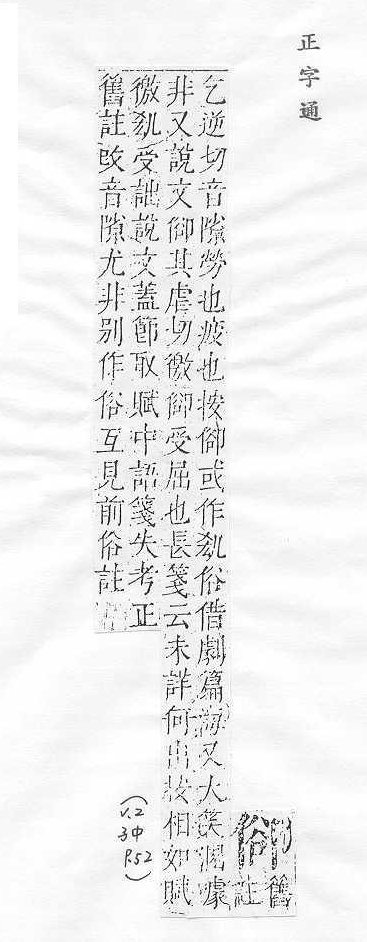 正字通
舊註
乞逆切音隙勞也疲也按或作俗借劇篇海又大笑噱
非又說文其虐切徼受屈也長箋云未詳何出按相如賦
徼受詘說文蓋節取賦中語箋失考正
舊註改音隙尤非別作互見前註
(V.2
子中
P.52)